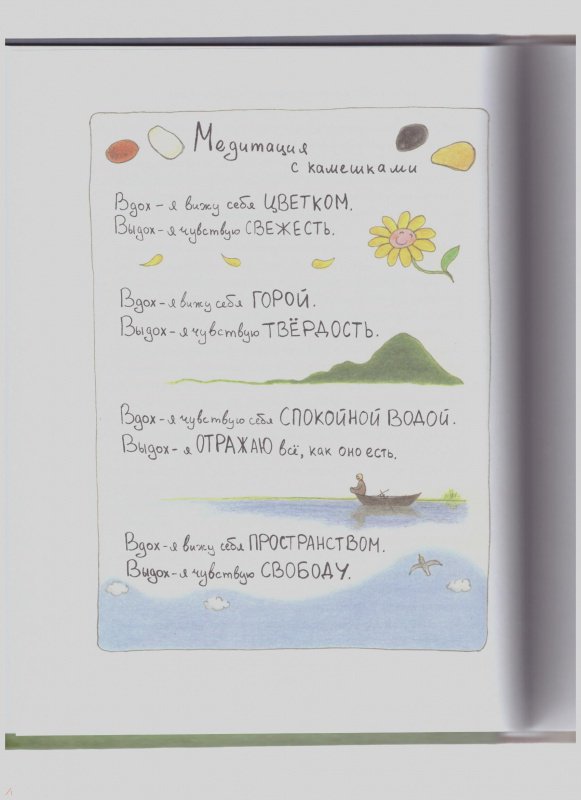 Медитация
с камешками
Вдох – я вижу себя ЦВЕТКОМ.
Выдох – я чувствую СВЕЖЕСТЬ.
Вдох – я вижу себя ГОРОЙ.
Выдох – я чувствую ТВЁРДОСТЬ.
Вдох – я чувствую себя СПОКОЙНОЙ ВОДОЙ.
Выдох – я ОТРАЖАЮ всё, как оно есть.
Вдох – я вижу себя ПРОСТРАНСТВОМ.
Выдох – я чувствую СВОБОДУ.